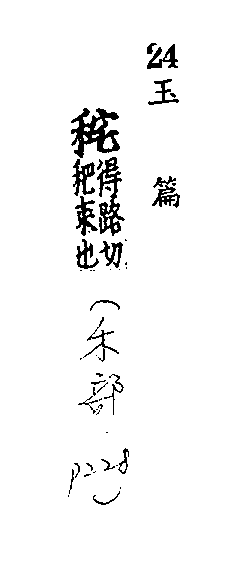 24
玉篇
秺
得路切
把束也
(禾部.
p228)